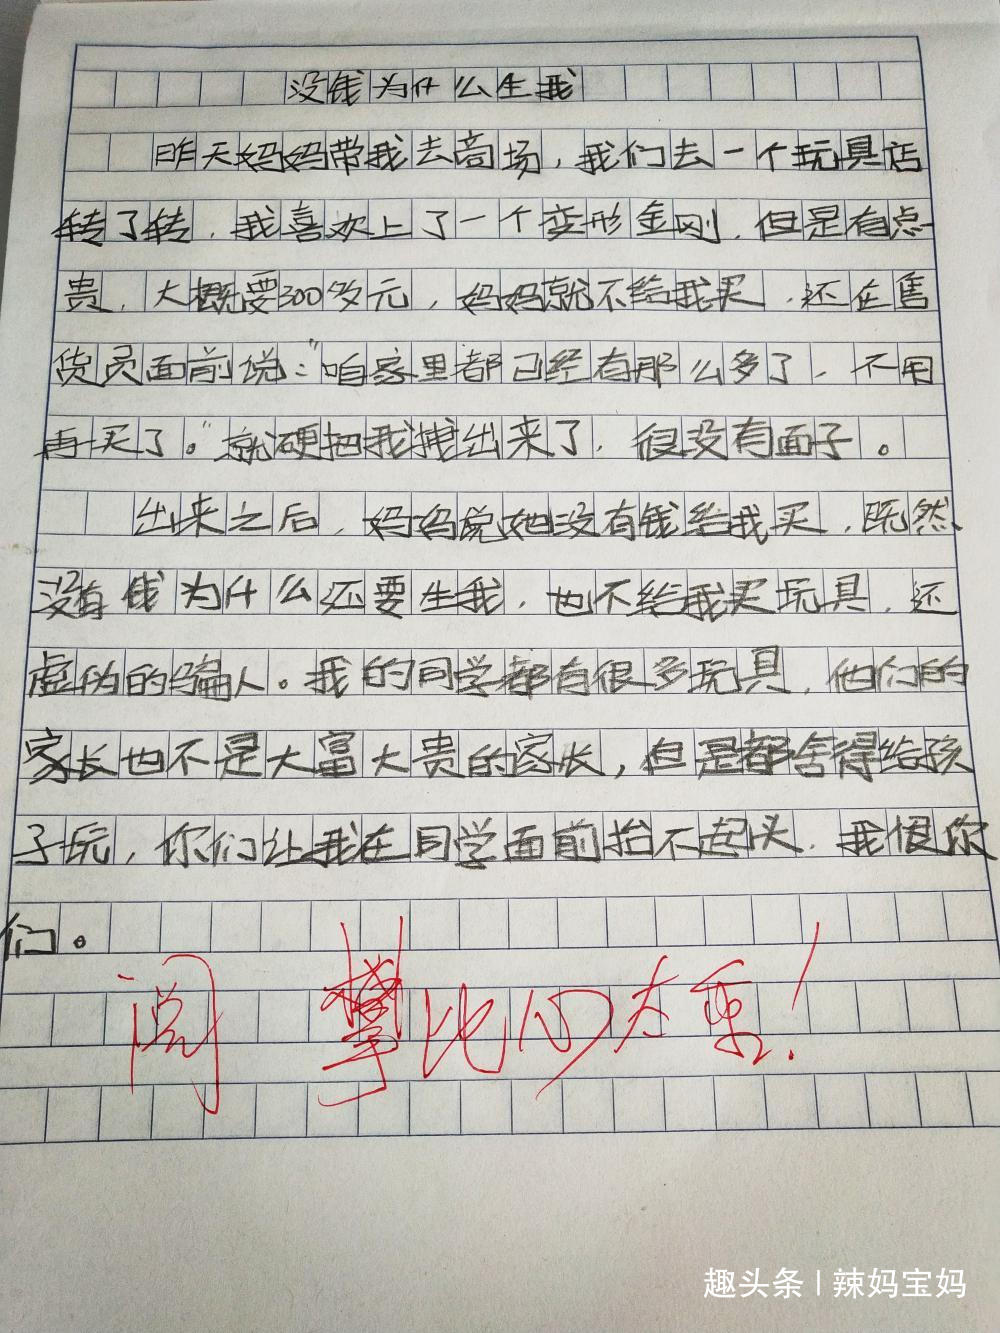 没钱为什么生我
昨天妈妈带我去商场，我们去一个玩具店
转了转，我喜欢上了一个变形金刚，但是有点
贵，大概要300多元，妈妈就不给我买，还在售
货员面前说：“咱家里都已经有那么多了，不用
再买了。”就硬把我拽出来了，很没有面子。
出来之后，妈妈说她没有钱给我买，既然
没有钱为什么还要生我，也不给我买玩具，还
虚伪的骗人。我的同学都有很多玩具，他们的
家长也不是大富大贵的家长，但是都舍得给孩
子玩，你们让我在同学面前抬不起头，我恨你
们。
阅 攀比心太重！
趣头条 | 辣妈宝妈